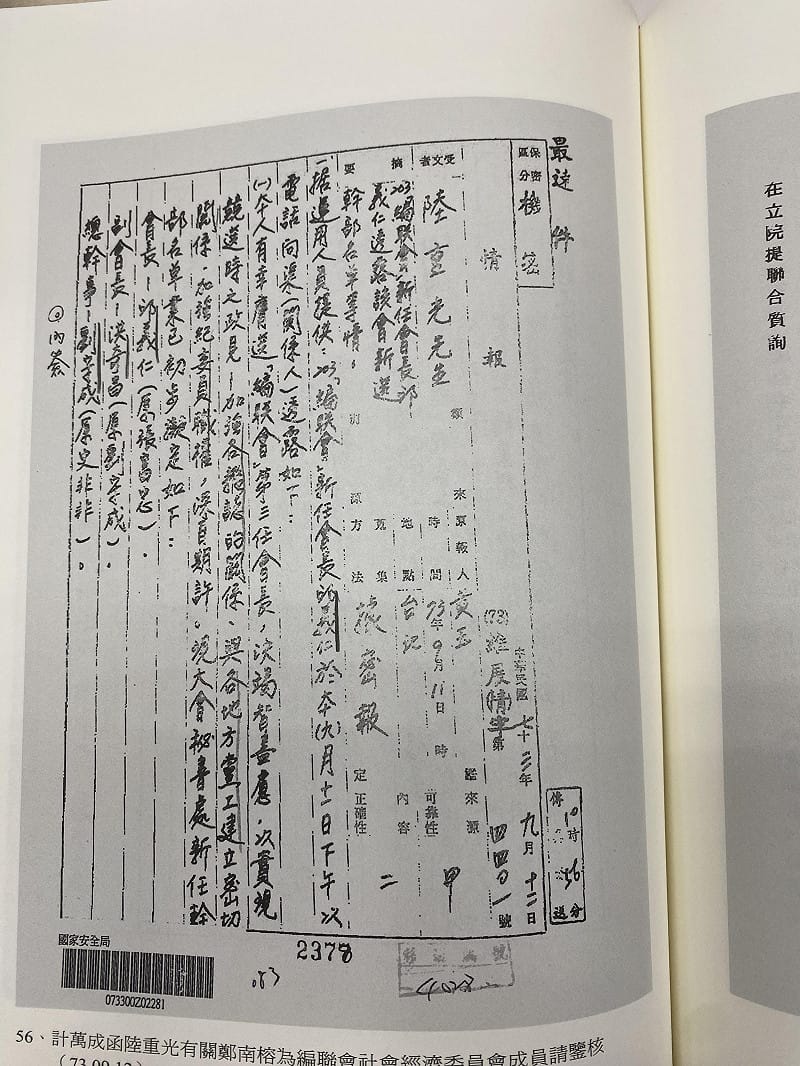 最速件
保密區分 機密
情報
中華民國七十三年九月十二日
(73)維展(情)字第四四〇一號
傳 10時56分 送
受文者 陸重光先生
摘要
203「編聯會」新任會長邱
義仁透露該會新選
幹部名單等情。
類別
來源
報人 黃玉
時間 73年9月11日 時
地點 台北
蒐集方法 秘密
鑑定
來源可靠性 甲
內容正確性 二
一、據運用人員提供:203「編聯會」新任會長邱義仁於本(九)月十一日下午以
電話向渠(關係人)透露如下:
(一)本人有幸膺選「編聯會」第三任會長,決竭智盡慮,以實現
競選時之政見-加強各雜誌的關係、與各地方黨工建立密切
關係、加強紀委員職權,深自期許。現大會秘書處新任幹
部名單業已初步擬定如下:
會長-邱義仁(原張富忠)。
副會長-洪奇昌(原劉守成)。
總幹事-劉守成(原史非非)。
內崟
國家安全局
073300Z02281
2378
053
56、計萬成函陸重光有關鄭南榕為編聯會社會經濟委員會成員請鑒核
(73.09.12)
在立院提聯合質詢